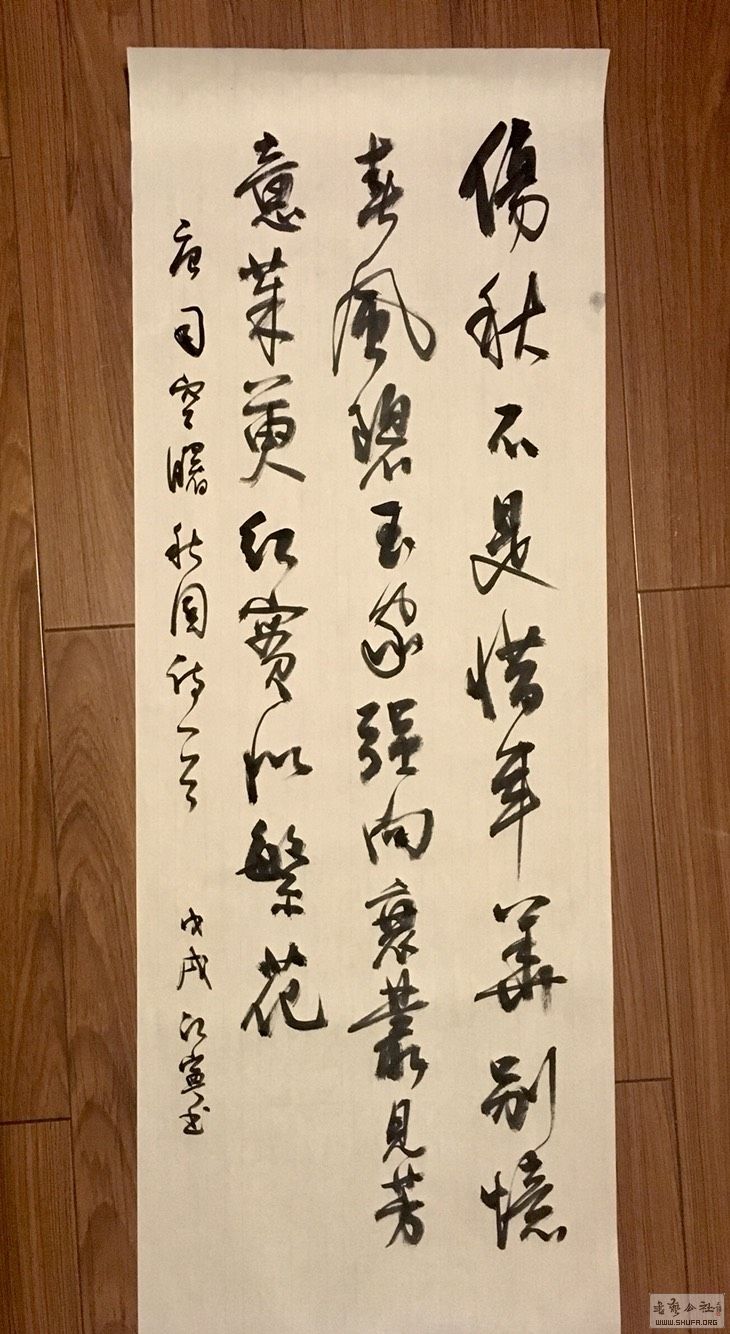 傷秋不是惜年華別憶
春風碧玉家強向衰叢見芳
意茱萸紅實似繁花
唐司空曙秋園詩一首 戊戌 江寅书
書藝公社
WWW.SHUFA.ORG